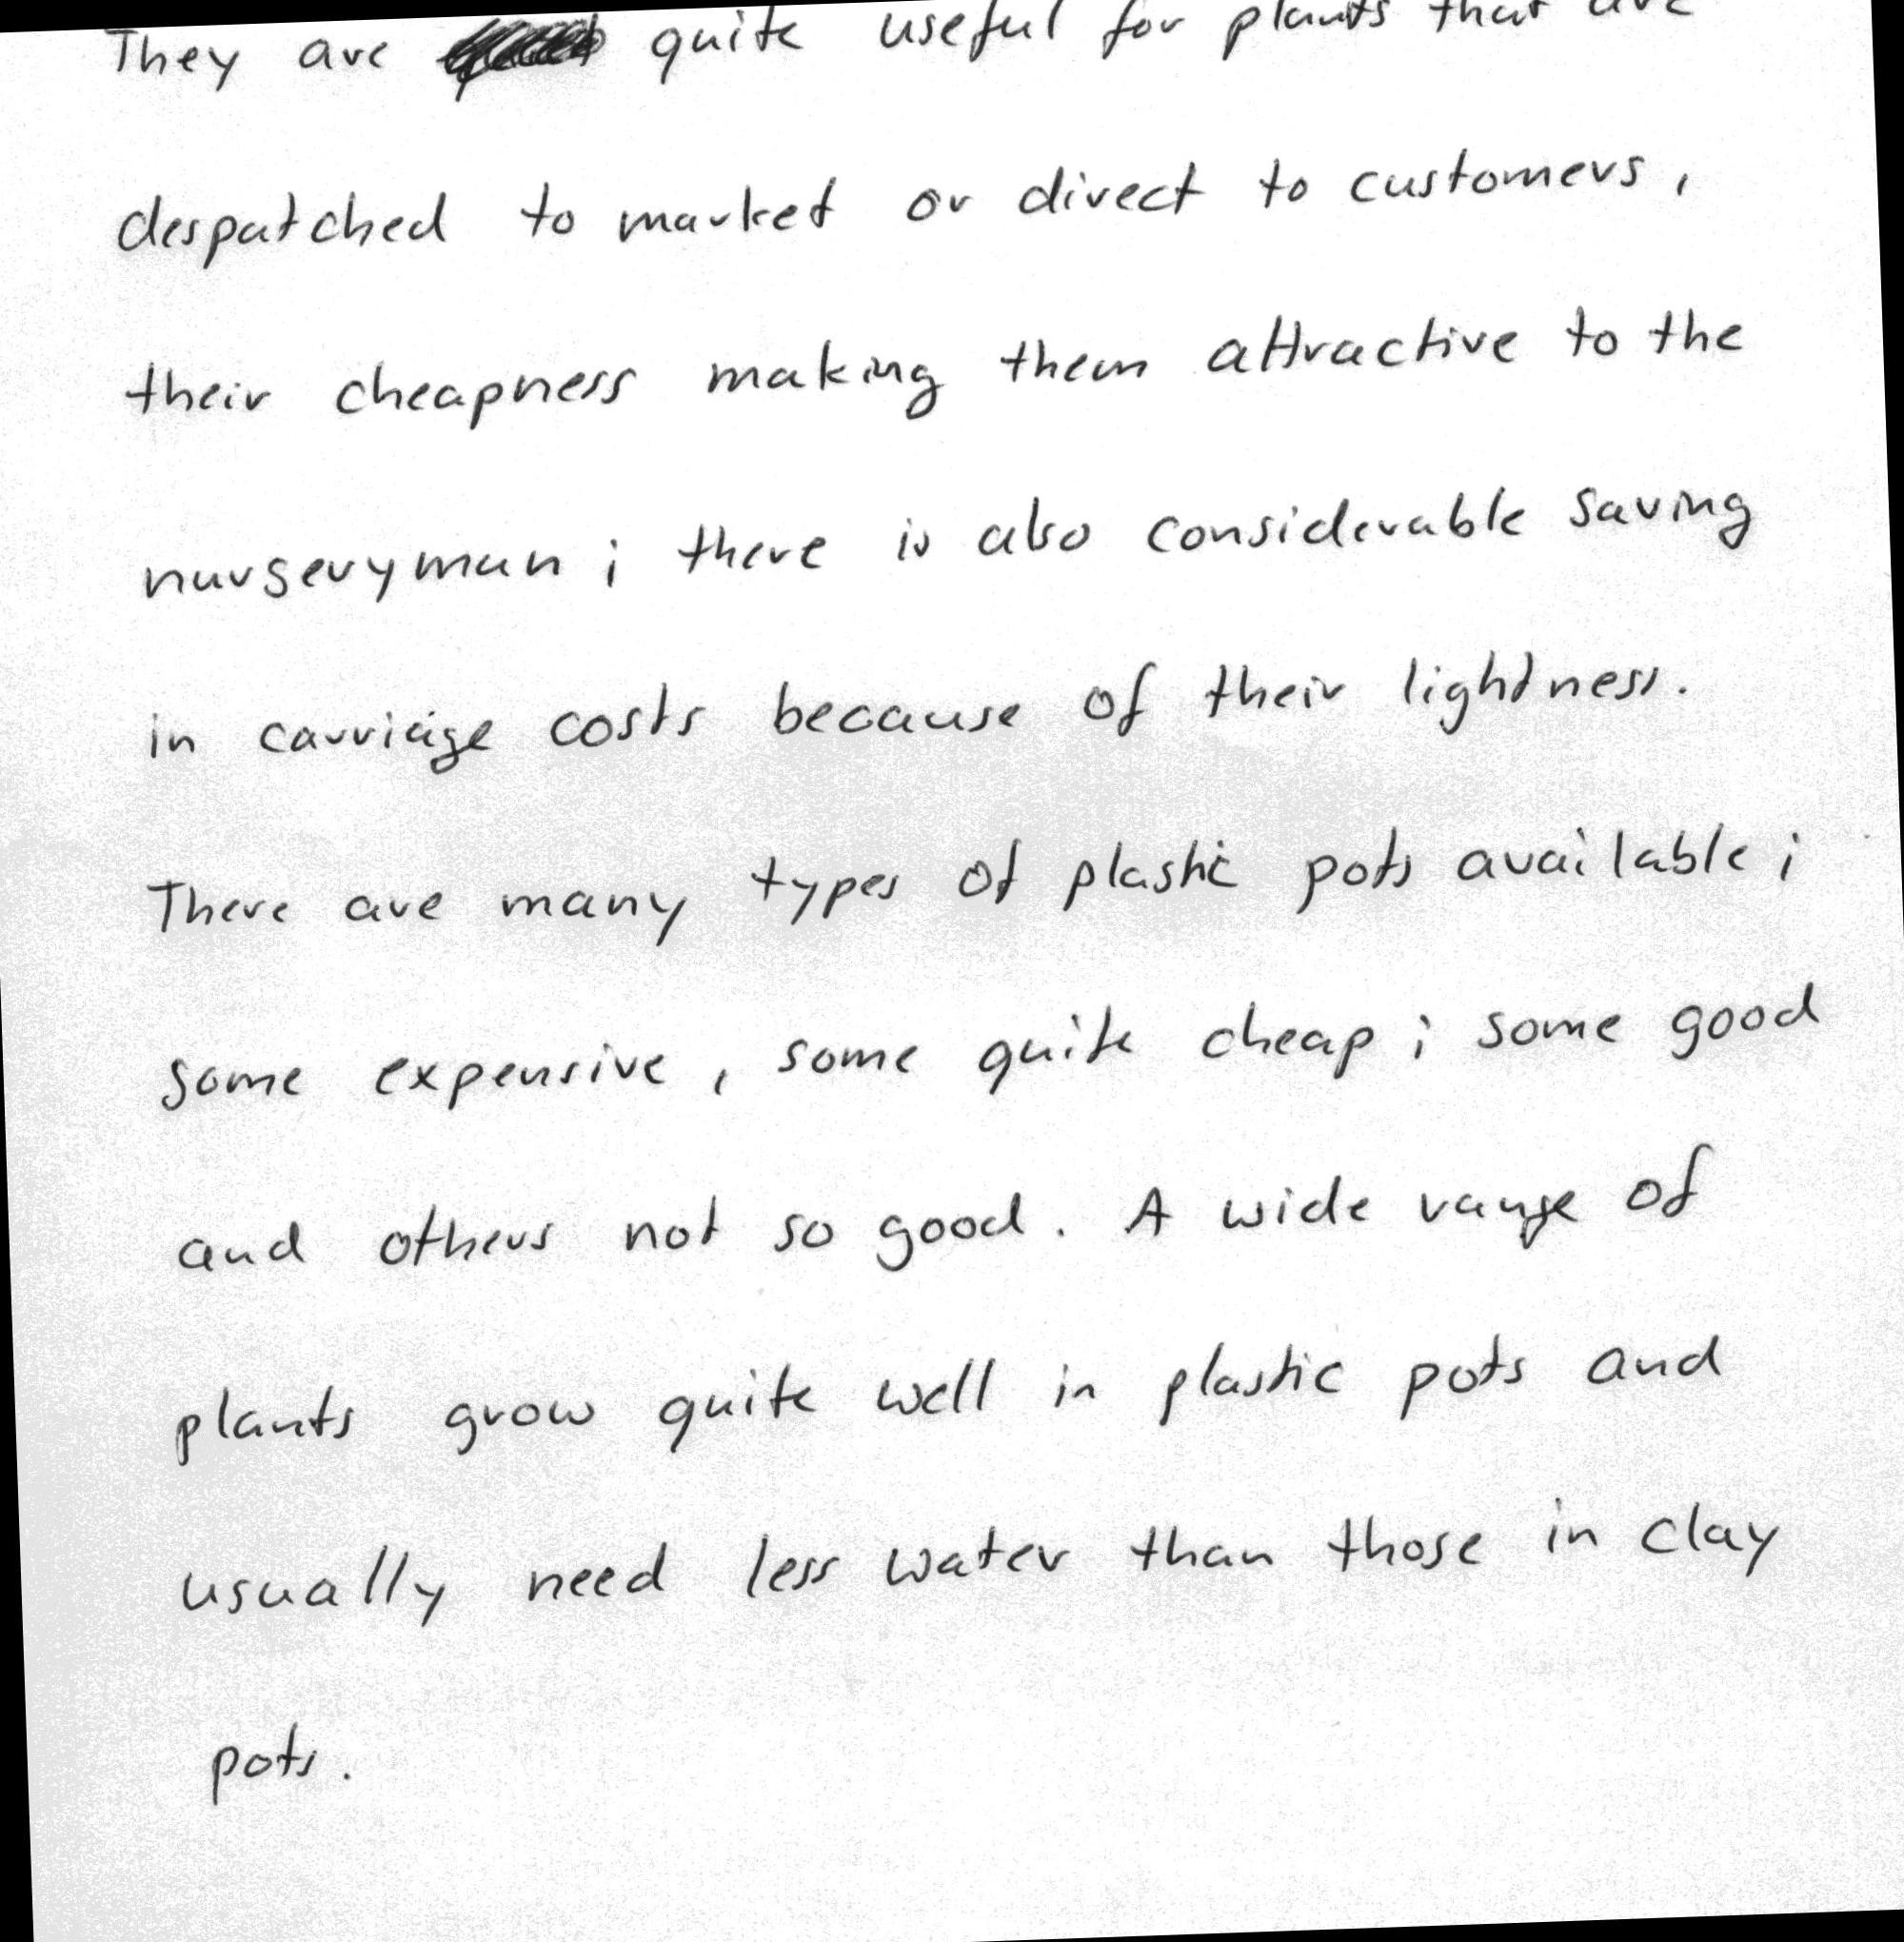 They are quite useful for plants that are
despatched to market or direct to customers,
their cheapness making them attractive to the
nurseryman; there is also considerable saving
in carriage costs because of their lightness.
There are many types of plastic pots available;
some expensive, some quite cheap; some good
and others not so good. A wide range of
plants grow quite well in plastic pots and
usually need less water than those in clay
pots.